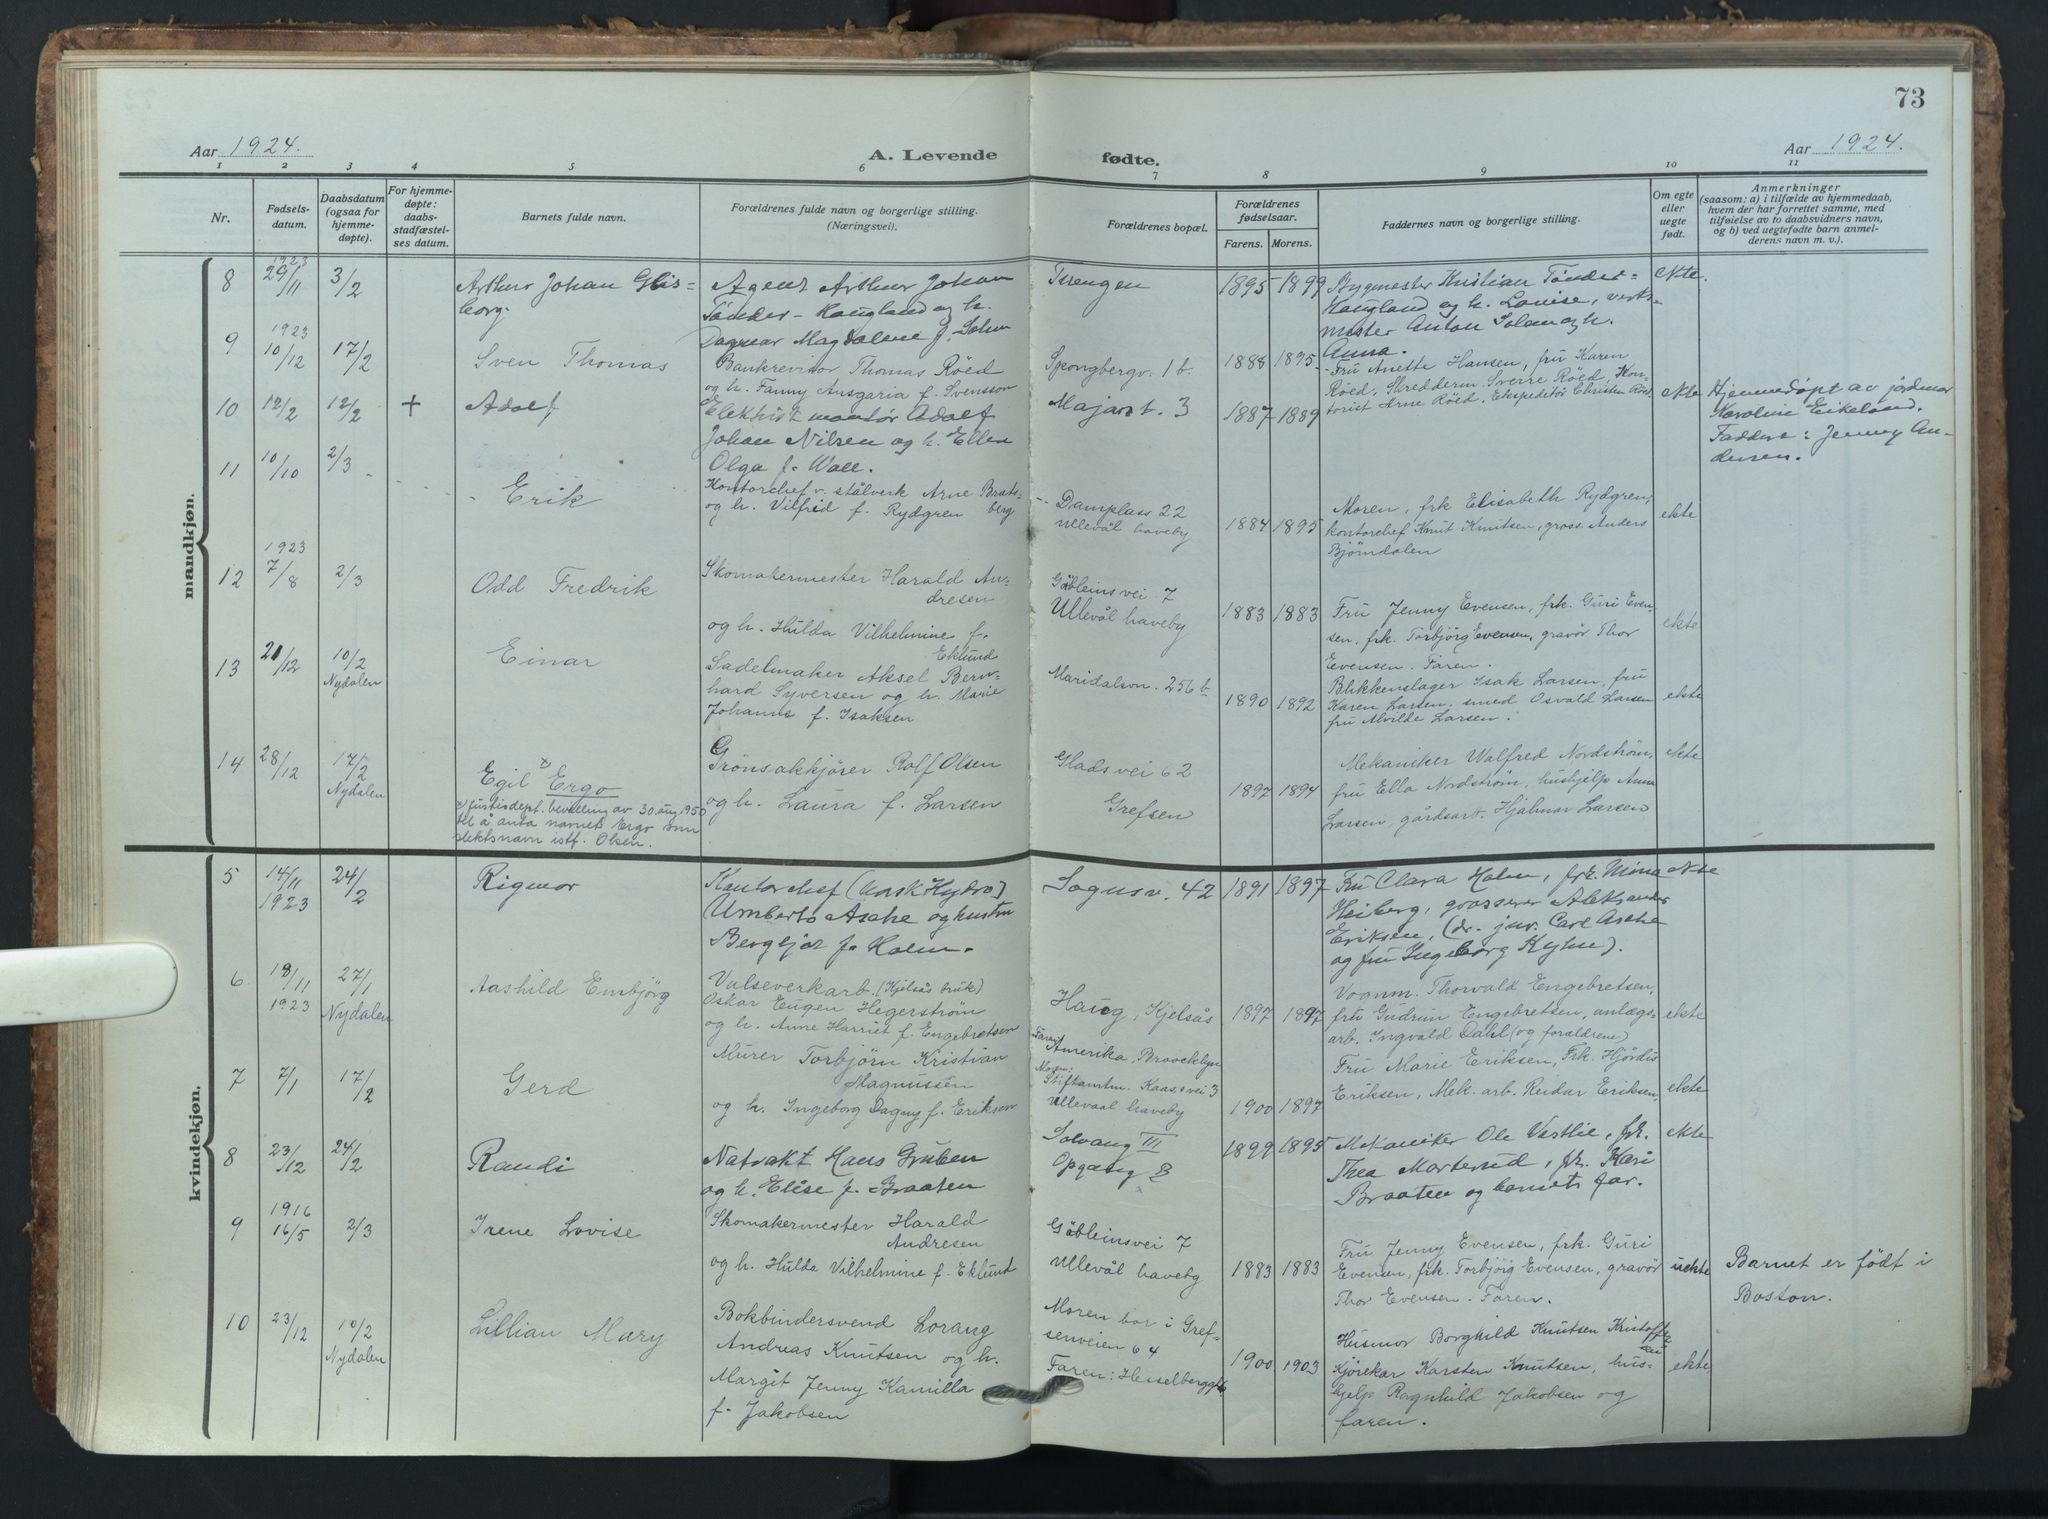 73
Aar 1924.
A. Levende
fødte.
Aar 1924.
1 2 3 4 5 6 7 8 9 10 11
Nr.
Fødsels-
datum.
Daabsdatum
(ogsaa for
hjemme-
døpte).
For hjemme-
døpte:
daabs-
stadfæstel-
ses datum.
Barnets fulde navn.
Forældrenes fulde navn og borgerlige stilling.
(Næringsvei).
Forældrenes bopæl.
Forældrenes
fødselsaar.
Farens. Morens.
Faddernes navn og borgerlige stilling.
Om egte
eller
uegte
født.
Anmerkninger
(saasom: a) i tilfælde av hjemmedaab,
hvem der har forrettet samme, med
tilføielse av to daabsvidners navn,
og b) ved uegtefødte barn anmel-
derens navn m. v.).
mandkjøn.
8
1923
29/11
3/2
Arthur Johan
borg.
Agent Arthur Johan
Tönder-Haugland og h.
Dagmar Magdalene f.
Tuengen
1895 1899
Bygmester Kristian Tönder-
Haugland og h. Louise, verks-
mester Anton Solem og h.
Anna.
ekte.
9
1923
10/12
17/2
Sven Thomas
Bankrevisor Thomas Röed
og h. Fanny Ansgaria f. Svensson
Spongbergv. 1 b.
1888 1895
Fru Anette Hansen, fru Karen
Röed, Skredderm. Sverre Röed, Kon-
torist Arne Röed, Ekspeditör Christen Röed
ekte
10
12/2
12/2
+
Adolf
Elektrisk montör Adolf
Johan Nilsen og h. Ellen
Olga f. Wall.
Majorst. 3
1887 1889
Hjemmedöpt av jordmor
Karoline Eikeland.
Faddere: Jenny An-
dersen.
11
10/10
2/3
Erik
Kontorchef v. stålverk Arne Brats-
berg
og h. Vilfrid f. Rydgren
Damplass 22
Ullevål haveby
1884 1895
Moren, frk Elisabeth Rydgren,
kontorchef Knut Knutsen, gross. Anders
Björndalen
ekte
12
1923
7/8
2/3
Odd Fredrik
Skomakermester Harald An-
dresen
og h. Hulda Vilhelmine f.
Eklund
Gåbleinsvei 7
Ullevål haveby
1883 1883
Fru Jenny Evensen, frk. Guri Even-
sen, frk. Torbjörg Evensen, gravör Thor
Evensen. Faren.
ekte
13
21/12
10/2
Nydalen
Einar
Sadelmaker Aksel Bern-
hard Syversen og h. Marie
Johanne f. Isaksen
Maridalsvn. 256 b
1890 1892
Blikkenslager Isak Larsen, fru
Karen Larsen, smed Osvald Larsen
fru Alvilde Larsen.
ekte
14
28/12
17/2
Nydalen
Egil x Ergo
x) Justisdept. bevilling av 30 aug. 1950
til å anta navnet Ergo som
slektsnavn istf. Olsen.
Grönsakkjörer Rolf Olsen
og h. Laura f. Larsen
Glads vei 62
Grefsen
1897 1894
Mekaniker Walfred Nordström,
fru Ella Nordström, hushjelp Anna
Larsen, gårdsarb. Hjalmar Larsen
ekte
kvindekjøn.
5
14/11
1923
24/2
Rigmor
Kontorchef (Norsk Hydro)
Umberto Asche og hustru
Bergljot f. Holm.
Sognsv. 42
1891 1897
Fru Clara Holm, frk. Mina
Heiberg, grosserer Aleksander
Eriksen, (dr. jur. Carl Asche
og fru Ingeborg Kyhn).
ekte
6
18/11
1923
27/1
Nydalen
Aashild Embjörg
Valseverkarb. (Kjelsås bruk)
Oskar Eugen Hegerström
og h. Anne Harriet f. Engebretsen
Haug, Kjelsås
1897 1897
Vognm. Thorvald Engebretsen,
fru Gudrun Engebretsen, anlægs-
arb. Ingvald Dahl (og forældrene)
ekte
7
7/1
17/2
Gerd
Murer Torbjörn Kristian
Magnussen
og h. Ingeborg Dagny f. Eriksen
Faren:
Amerika, Broocklyn
Moren:
Stiftkamtm. Kaas,s vei 3
Ullevaal haveby
1900 1897
Fru Marie Eriksen, Frk. Hjördis
Eriksen, Mek. arb. Reidar Eriksen
ekte
8
23/12
24/2
Randi
Natvakt Hans Gruben
og h. Elise f. Braaten
Solvang III
Opgang 8
1899 1895
Mekaniker Ole Vestlie, frk.
Thea Marterud, frk. Kari
Braaten og barnets far.
ekte
9
1916
16/5
2/3
Irene Lovise
Skomakermester Harald
Andresen
og h. Hulda Vilhelmine f. Eklund
Gåbleinsvei 7
Ullevål haveby
1883 1883
Fru Jenny Evensen, frk. Guri
Evensen, frk. Torbjörg Evensen, gravör
Thor Evensen. Faren.
uekte
Barnet er födt i
Boston.
10
23/12
10/2
Nydalen
Lillian Mary
Bokbindersvend Lorang
Andreas Knutsen og h.
Margit Jenny Kamilla
f. Jakobsen
Moren bor i Gref-
senveien 64
Faren:
1900 1903
Husmor Borghild Knutsen
Kjörekar Karsten Knutsen, hus-
hjelp Ragnhild Jakobsen og
faren.
ekte